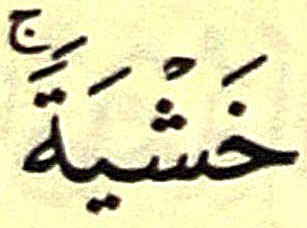 خَشْيَةً ۚ